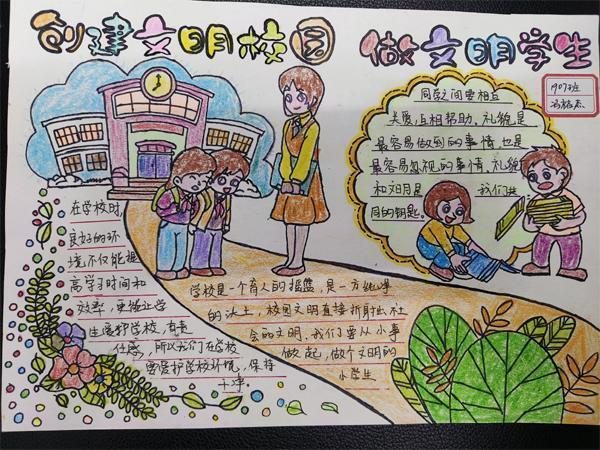 创建文明校园 做文明学生
1907班
同学之间要相互
关爱,互相帮助。礼貌是
最容易做到的事情,也是
最容易忽视的事情。礼貌
和
我们共
同的钥匙。
在学校时,
良好的环
境不仅能提
高学习时间和
效率,更能让学
生爱护学校,有责
任感,所以我们在学校
要爱护学校环境,保持
干净
学校是一个育人的摇篮,是一方纯净
的沃土,校园文明直接折射出社
会的文明。我们要从小事
做起,做个文明的
小学生